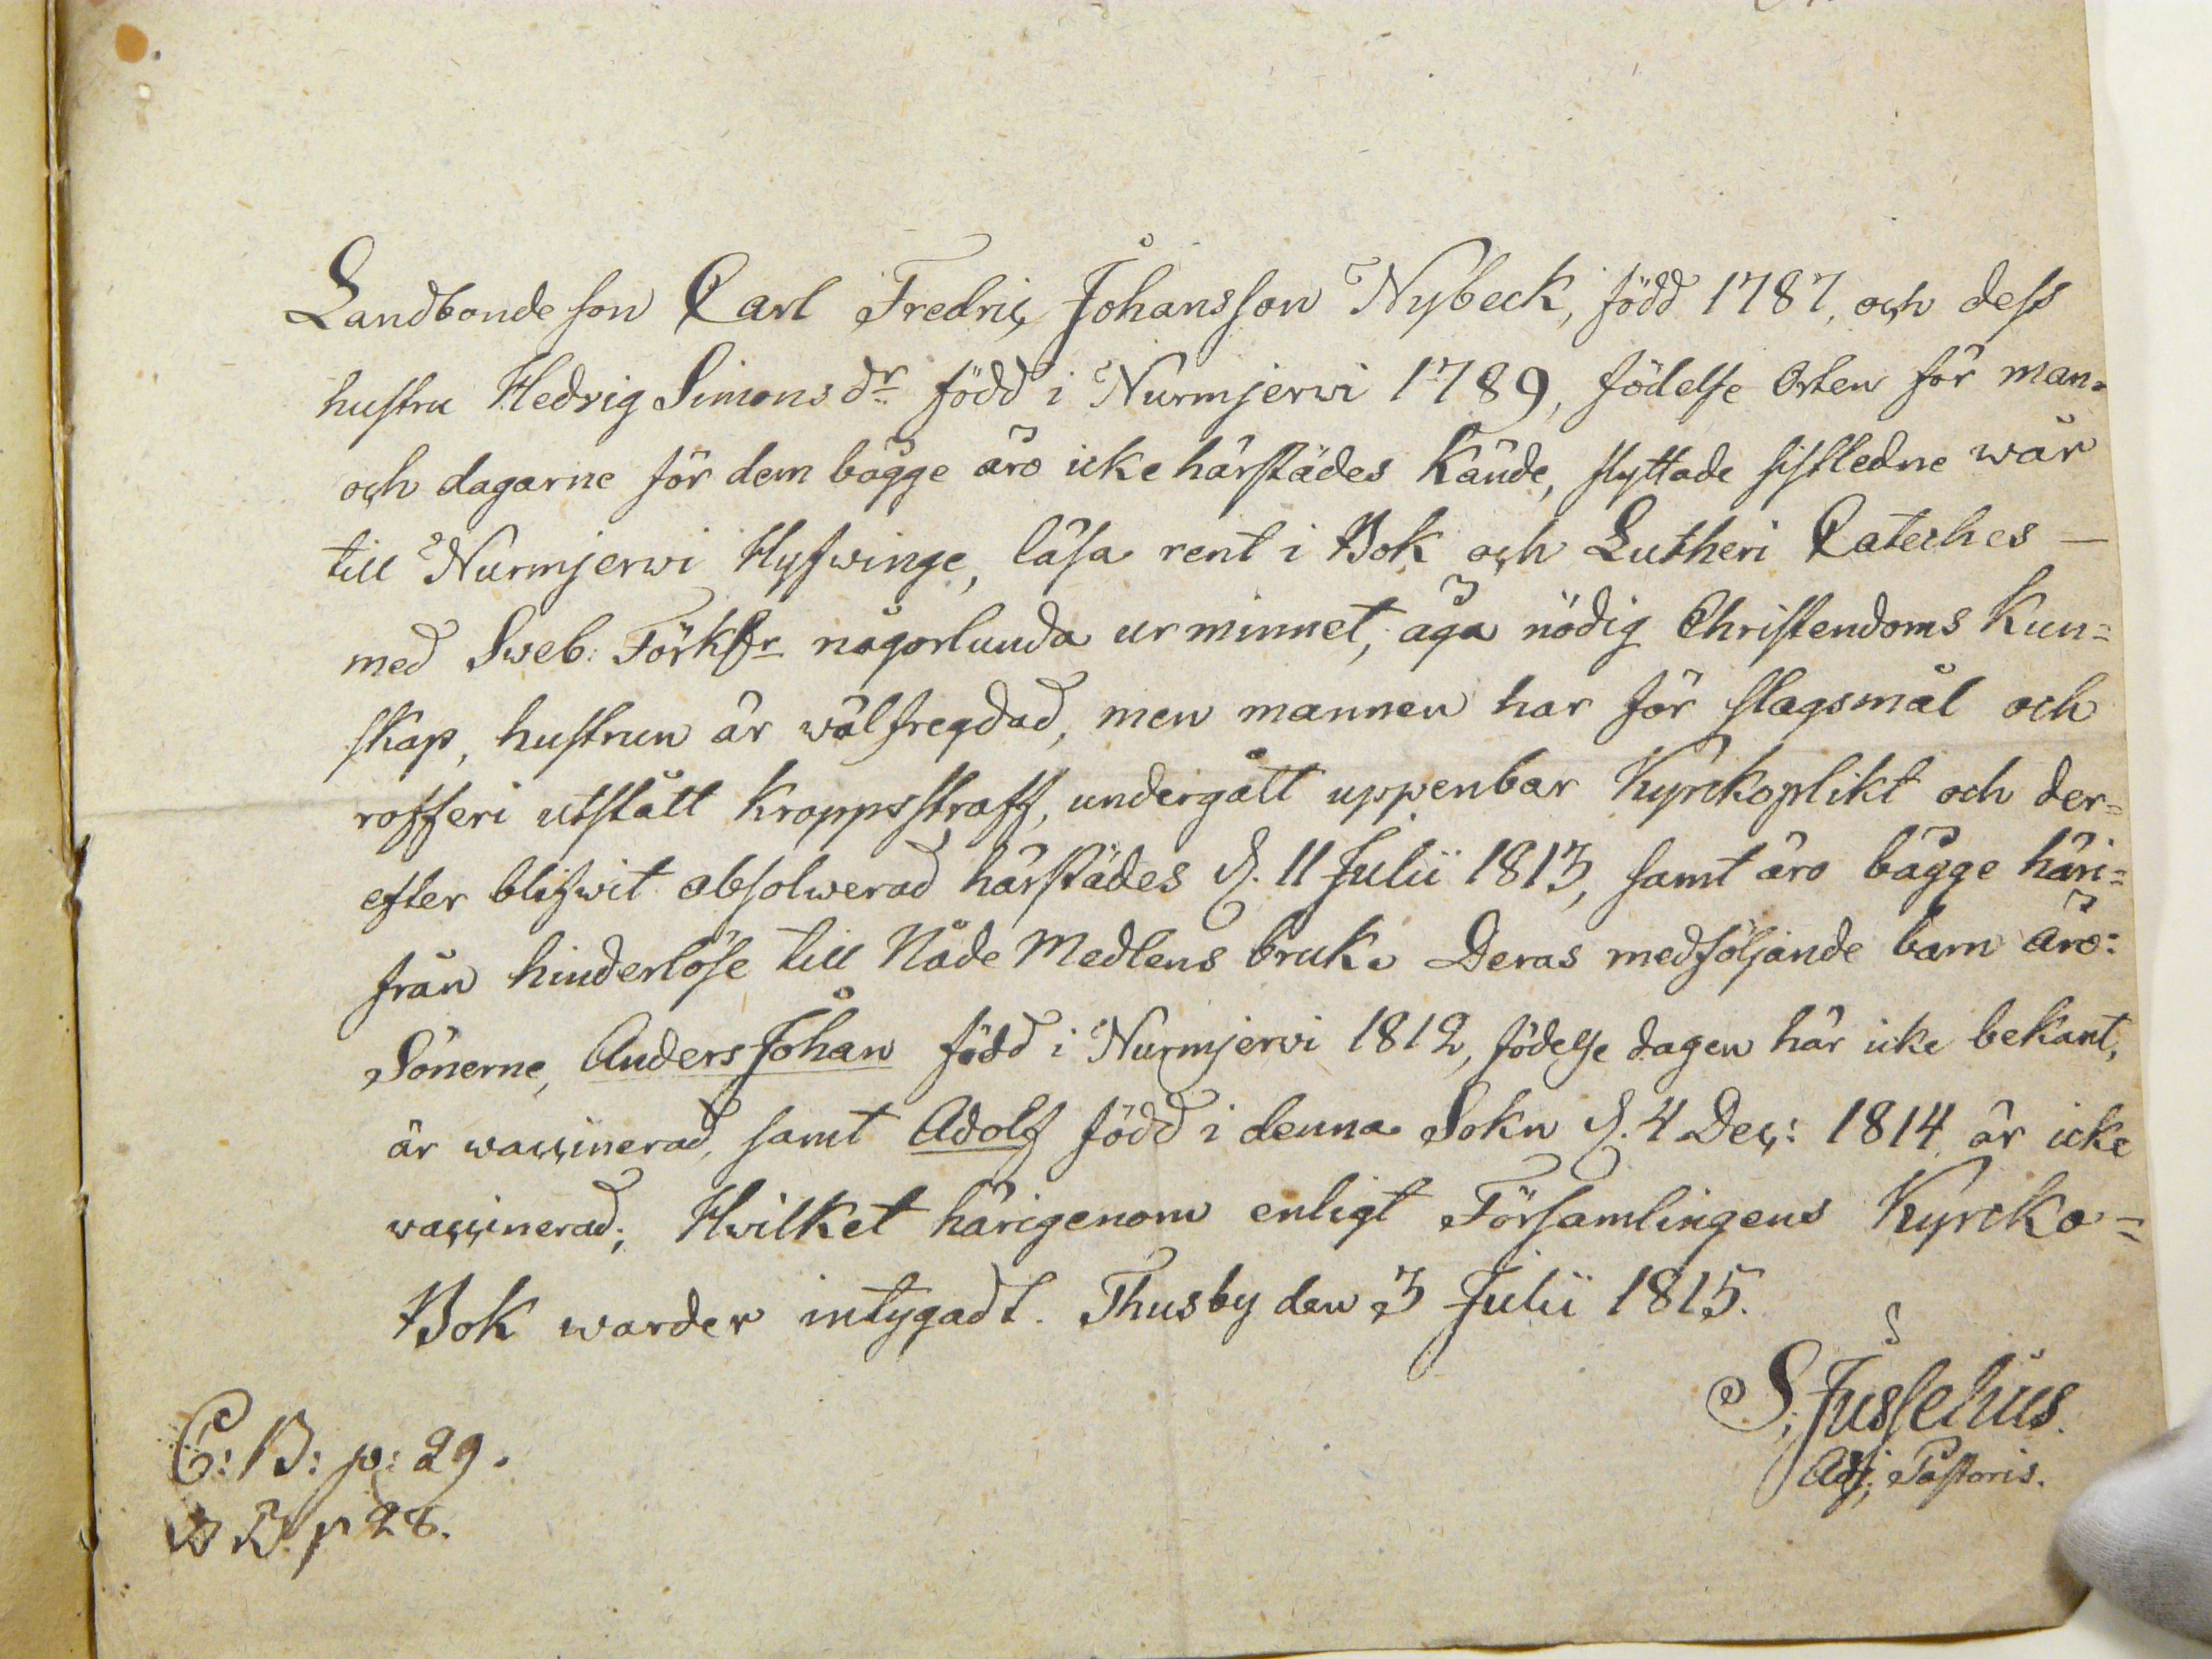 Landbonde son Carl Fredric Johansson Nybeck, född 1787, och dess
hustru Hedvig Simons dr född i Nurmjerwi 1789, födelse Orten för man-
och dagarne för dem bägge äro icke härstädes Kände, flyttade sistledne wår
till Nurmjerwi Hyfwinge, läsa rent i Bok och Lutheri Cateches —
med Sweb: Förkl:r någorlunda ur minnet, äga nödig Christendoms Kun=
skap, hustrun är wälfregdad, men mannen har för slagsmål och
rofferi utstått Kroppsstraff, undergått uppenbar Kyrckoplikt och der=
efter blifwit absolwerad härstädes d. 11 Julii 1813, samt äro bägge häri=
från hinderlöse till Nåde Medlens bruk. Deras medföljande barn äro:
Sönerne, Anders Johan född i Nurmjerwi 1812, födelse dagen här icke bekant,
är waccinerad, samt Adolf född i denna Sokn d. 4 Dec: 1814 är icke
waccinerad; Hvilket härigenom enligt Församlingens Kyrcko=
Bok warder intygadt. Thusby den 3 Julii 1815.
S. Jusselius.
Adj; Pastoris.
C: B: p: 29.
B p 28.